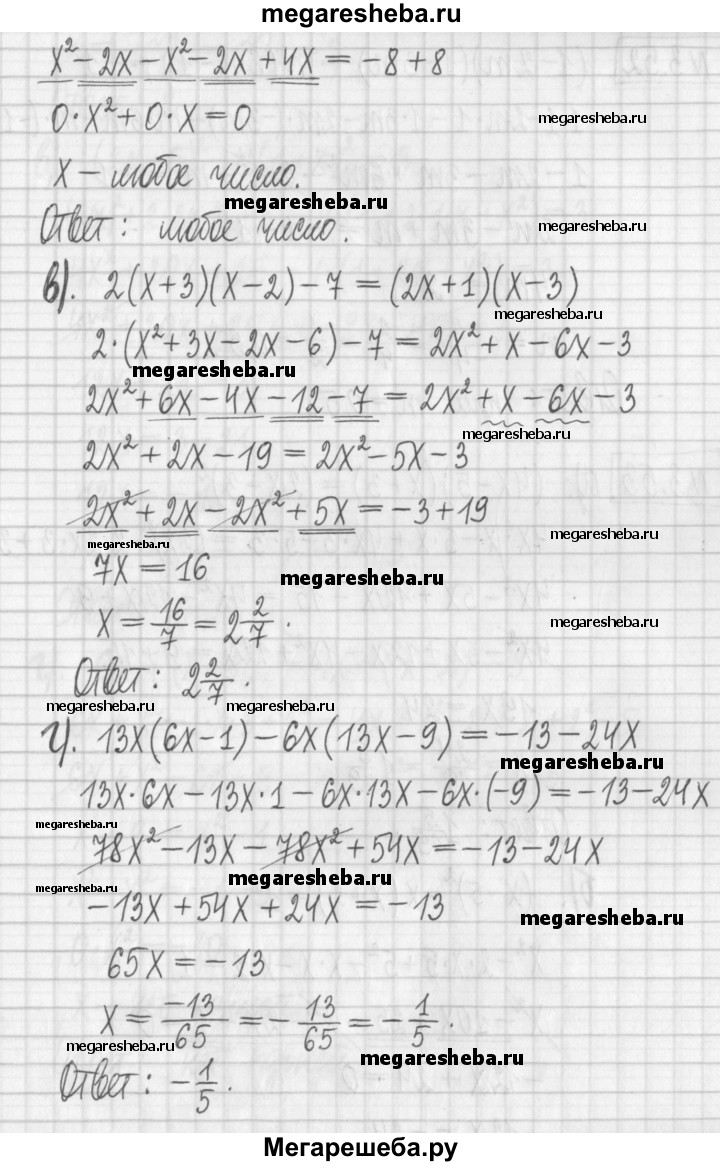 megaresheba.ru
x² - 2x - x² - 2x + 4x = -8 + 8
0·x² + 0·x = 0
megaresheba.ru
x – любое число.
megaresheba.ru
Ответ: любое число.
megaresheba.ru
в). 2(x+3)(x-2) - 7 = (2x+1)(x-3)
megaresheba.ru
2·(x² + 3x - 2x - 6) - 7 = 2x² + x - 6x - 3
megaresheba.ru
2x² + 6x - 4x - 12 - 7 = 2x² + x - 6x - 3
megaresheba.ru
2x² + 2x - 19 = 2x² - 5x - 3
2x² + 2x - 2x² + 5x = -3 + 19
megaresheba.ru megaresheba.ru
7x = 16
megaresheba.ru
x = 16/7 = 2 2/7.
megaresheba.ru
Ответ: 2 2/7.
megaresheba.ru megaresheba.ru megaresheba.ru
г). 13x(6x-1) - 6x(13x-9) = -13 - 24x
megaresheba.ru
13x·6x - 13x·1 - 6x·13x - 6x·(-9) = -13 - 24x
megaresheba.ru
78x² - 13x - 78x² + 54x = -13 - 24x
megaresheba.ru megaresheba.ru
-13x + 54x + 24x = -13
megaresheba.ru
65x = -13
x = -13/65 = -13/65 = -1/5.
megaresheba.ru megaresheba.ru
Ответ: -1/5.
Мегарешеба.ру